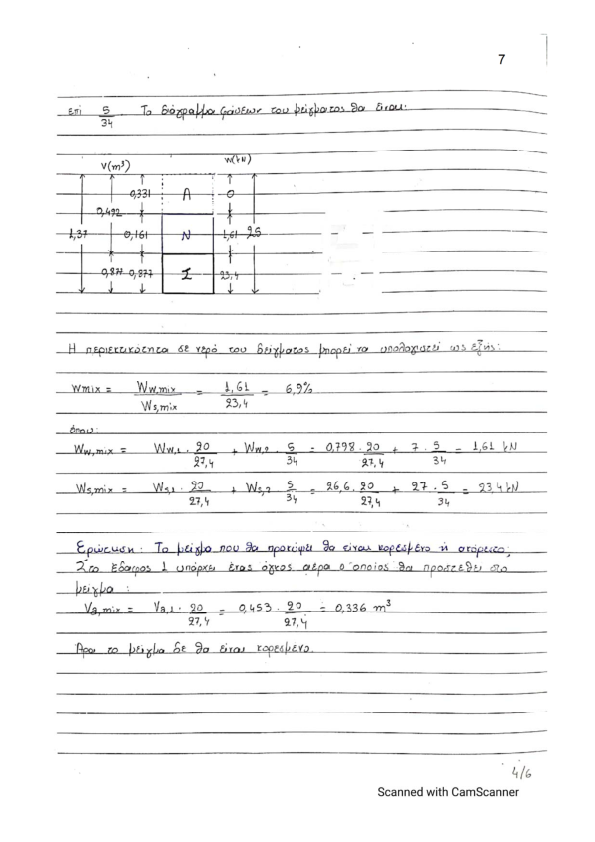 7
επί 5/34 Το διάγραμμα φάσεων του μείγματος θα είναι:
V(m³) W(kN)
0,331 A 0
0,492
1,37 0,161 N 1,61 25
0,877 0,877 Σ 23,4
Η περιεκτικότητα σε νερό του δείγματος μπορεί να υπολογιστεί ως εξής:
Wmix = Ww,mix / Ws,mix = 1,61 / 23,4 = 6,9%
όπου:
Ww,mix = Ww,1 · 20/27,4 + Ww,2 · 5/34 = 0,798 · 20/27,4 + 7 · 5/34 = 1,61 kN
Ws,mix = Ws,1 · 20/27,4 + Ws,2 · 5/34 = 26,6 · 20/27,4 + 27 · 5/34 = 23,4 kN
Ερώτηση: Το μείγμα που θα προκύψει θα είναι κορεσμένο ή ακόρεστο;
Στο έδαφος 1 υπάρχει ένας όγκος αέρα ο οποίος θα προστεθεί στο
μείγμα:
Va,mix = Va,1 · 20/27,4 = 0,453 · 20/27,4 = 0,336 m³
Άρα το μείγμα δε θα είναι κορεσμένο.
4/6
Scanned with CamScanner